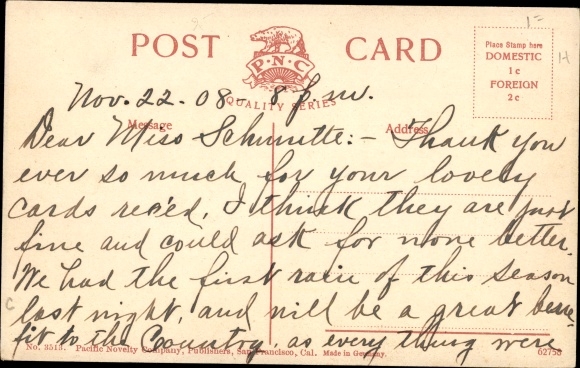 1=
H
POST CARD
P·N·C
QUALITY SERIES
Place Stamp here
DOMESTIC
1c
FOREIGN
2c
Nov. 22 - 08 8 p.m.
Message
Address
Dear Miss Schmitte:- Thank you
ever so much for your lovely
cards rec'ed, I think they are just
fine and could ask for none better.
We had the first rain of this season
last night, and will be a great bene
fit to the Country, as every thing were
No. 3513. Pacific Novelty Company, Publishers, San Francisco, Cal. Made in Germany.
62758
C